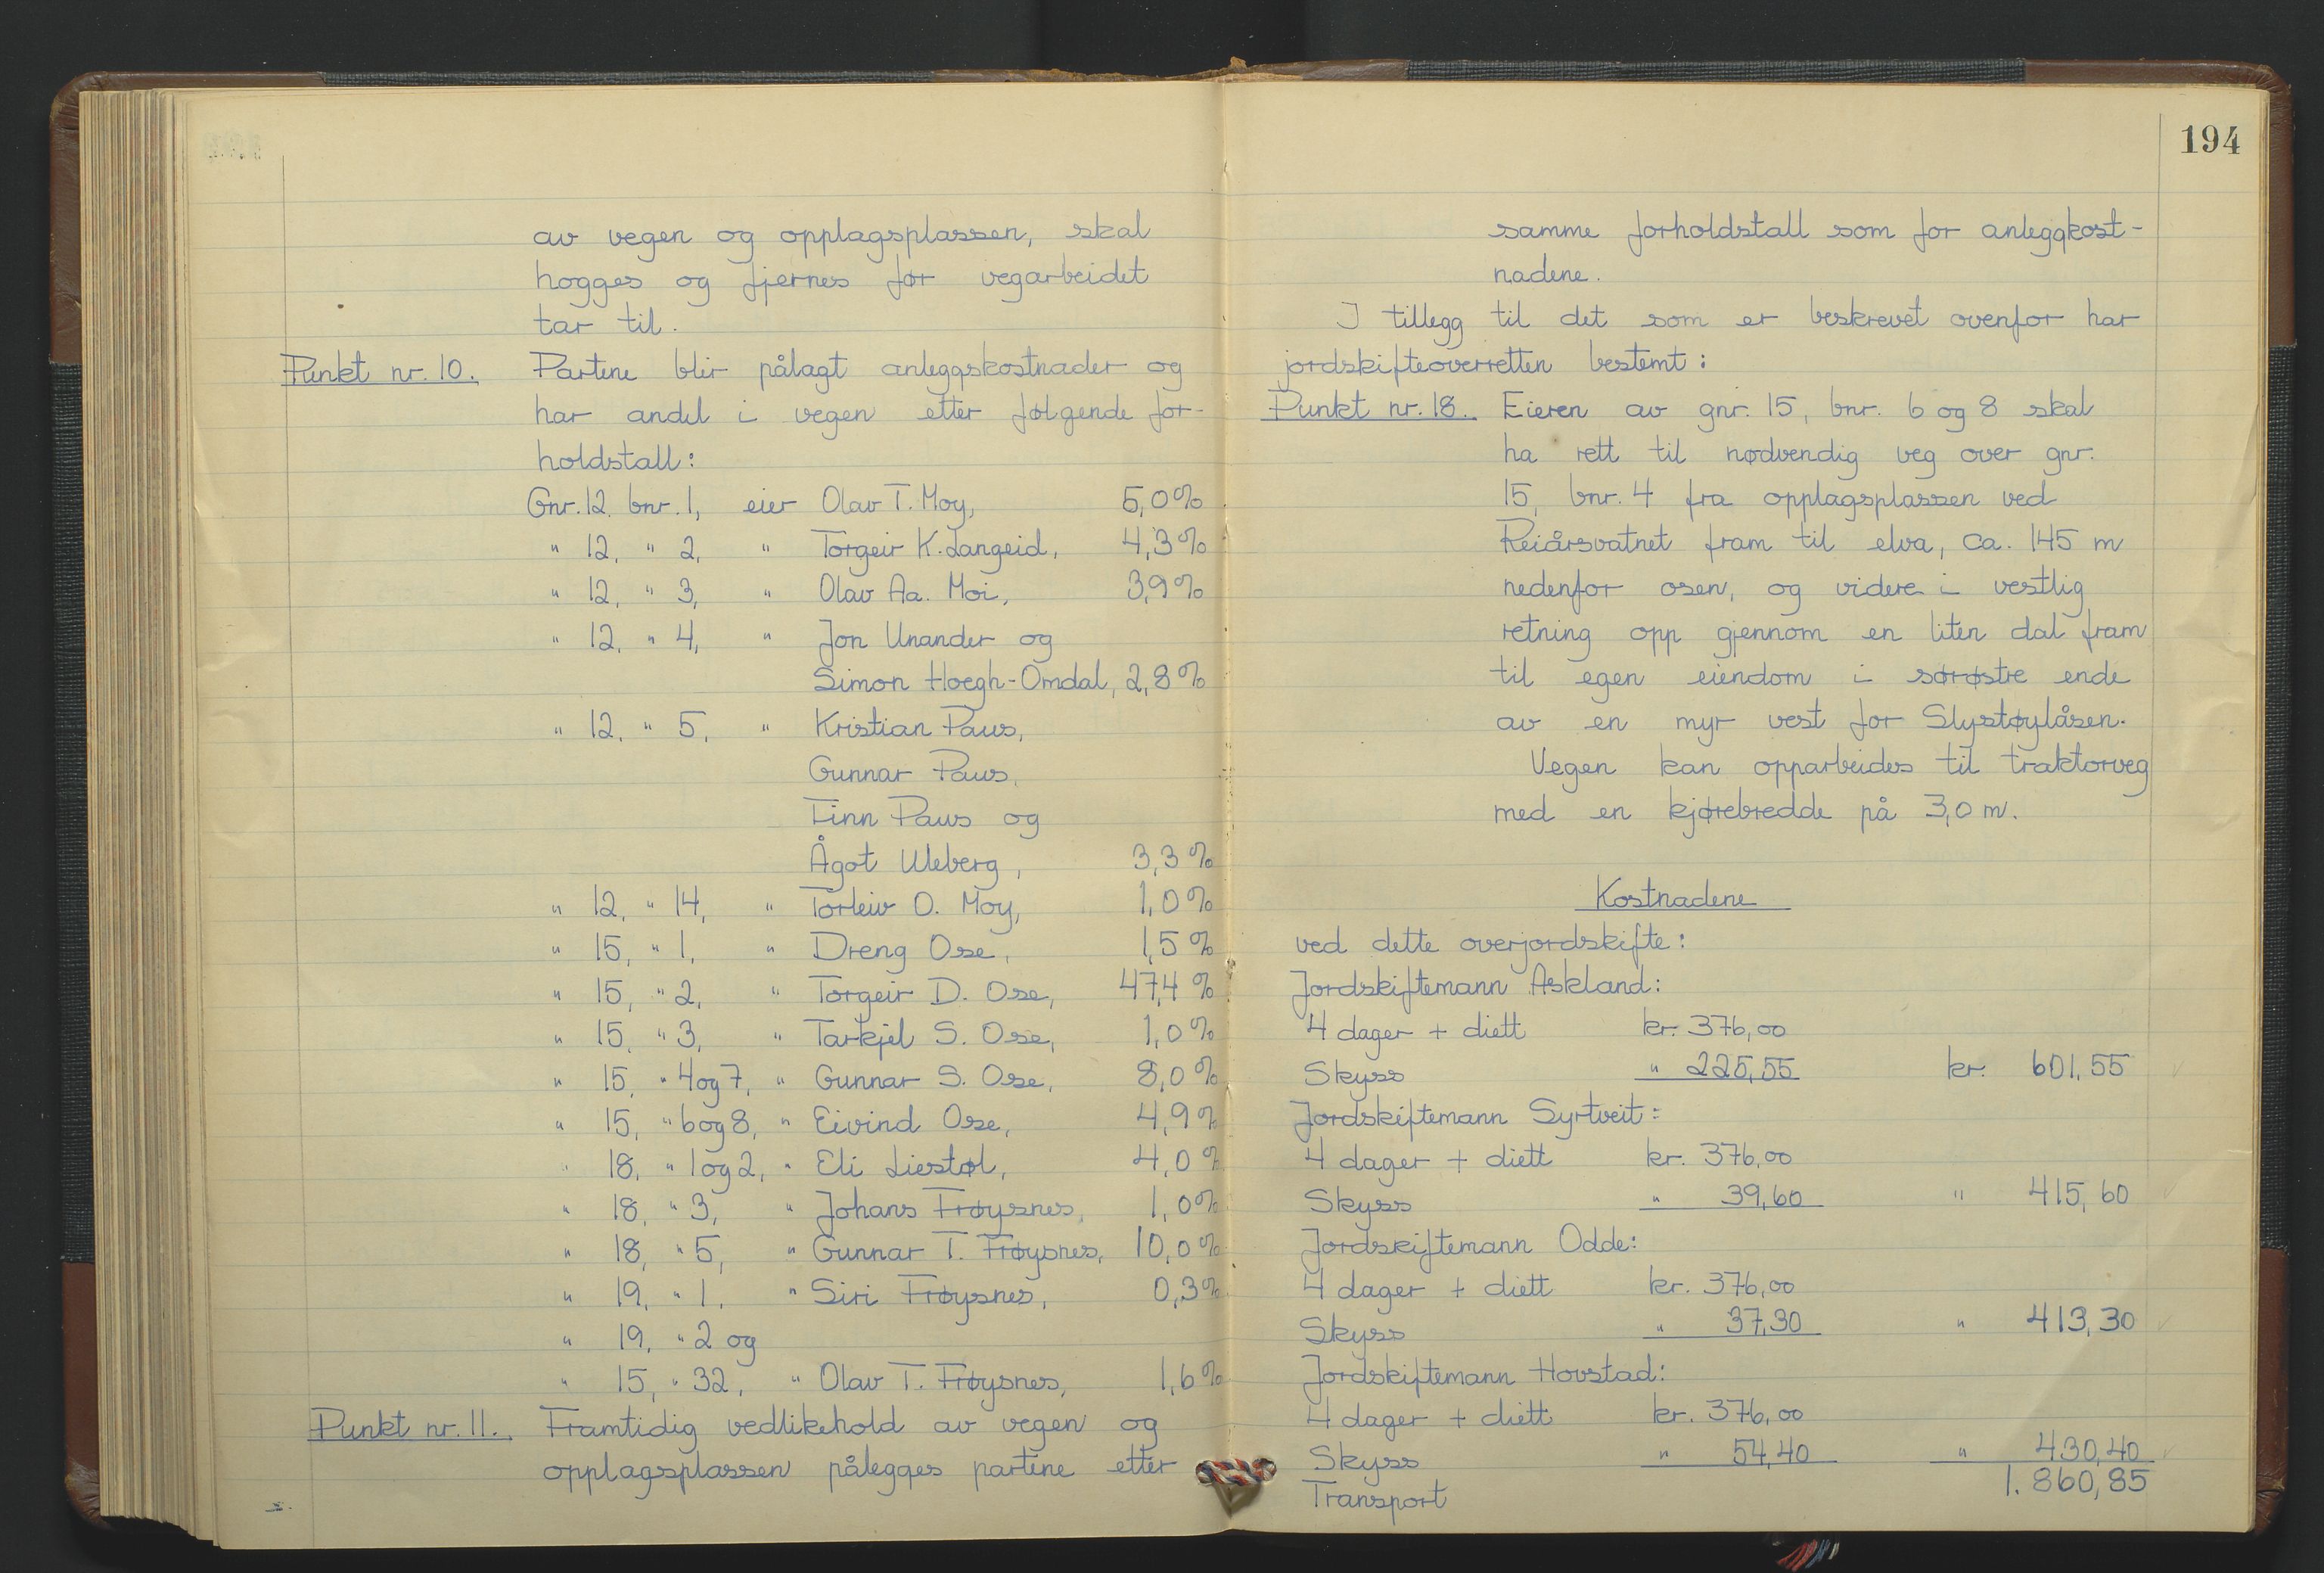 av vegen og opplagsplassen, skal
hogges og fjernes før vegarbeidet
tar til.
Punkt nr. 10. Partene blir pålagt anleggskostnader og
har andel i vegen etter følgende for-
holdstall:
Gnr. 12. bnr. 1, eier Olav T. Moy, 5,0%
" 12, " 2, " Torgeir K. Langeid, 4,3%
" 12, " 3, " Olav Aa. Moi, 3,9%
" 12, " 4, " Jon Unander og
Simon Hoegh-Omdal, 2,8%
" 12, " 5, " Kristian Paus,
Gunnar Paus,
Finn Paus og
Ågot Uleberg, 3,3%
" 12, " 14, " Torleiv O. Moy, 1,0%
" 15, " 1, " Dreng Ose, 1,5%
" 15, " 2, " Torgeir D. Ose, 47,4%
" 15, " 3, " Tarkjel S. Ose, 1,0%
" 15, " 4 og 7, " Gunnar S. Ose, 8,0%
" 15, " 6 og 8, " Eivind Ose, 4,9%
" 18, " 1 og 2, " Eli Liestøl, 4,0%
" 18, " 3, " Johans Frøysnes, 1,0%
" 18, " 5, " Gunnar T. Frøysnes, 10,0%
" 19, " 1, " Siri Frøysnes, 0,3%
" 19, " 2 og
" 15, " 32, " Olav T. Frøysnes, 1,6%
Punkt nr. 11. Framtidig vedlikehold av vegen og
opplagsplassen pålegges partene etter
194
samme forholdstall som for anleggkost-
nadene.
I tillegg til det som er beskrevet ovenfor har
jordskifteoverretten bestemt:
Punkt nr. 18. Eieren av gnr. 15, bnr. 6 og 8 skal
ha rett til nødvendig veg over gnr.
15, bnr. 4 fra opplagsplassen ved
Reiårsvatnet fram til elva, ca. 145 m
nedenfor osen, og videre i vestlig
retning opp gjennom en liten dal fram
til egen eiendom i sørøstre ende
av en myr vest for Slystøylåsen.
Vegen kan opparbeides til traktorveg
med en kjørebredde på 3,0 m.
Kostnadene
ved dette overjordskifte:
Jordskiftemann Askland:
4 dager + diett kr. 376,00
Skyss " 225,55 kr. 601,55
Jordskiftemann Syrtveit:
4 dager + diett kr. 376,00
Skyss " 39,60 " 415,60
Jordskiftemann Odde:
4 dager + diett kr. 376,00
Skyss " 37,30 " 413,30
Jordskiftemann Hovstad:
4 dager + diett kr. 376,00
Skyss " 54,40 " 430,40
Transport 1.860,85